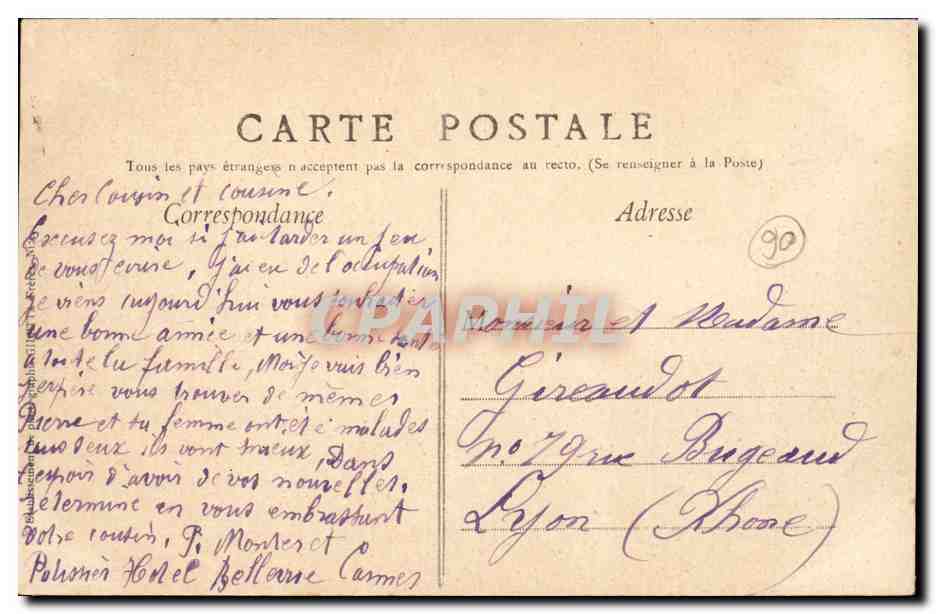 CARTE POSTALE
Tous les pays étrangers n'acceptent pas la correspondance au recto. (Se renseigner à la Poste)
Cher Cousin et cousine.
Correspondance
Adresse
90
Excusez moi si j'ai tarder un peu
de vous écrire, j'ai eu de l'ocupation
je viens aujourd'hui vous souhaiter
une bonne année et une bonne santé
a toute la famille, Moi je vais bien
j'espère vous trouver de mèmes
Pierre et sa femme ont été malades
tous deux ils vont mieux, Dans
l'espoir d'avoir de vos nouvelles.
je termine en vous embrassant
votre cousin, P. Monteret
Patissier Hotel Bellevue Cannes
Monsieur et Madame
Gireaudot
no 79 rue Bugeaud
Lyon (Rhone)
CPAPHIL